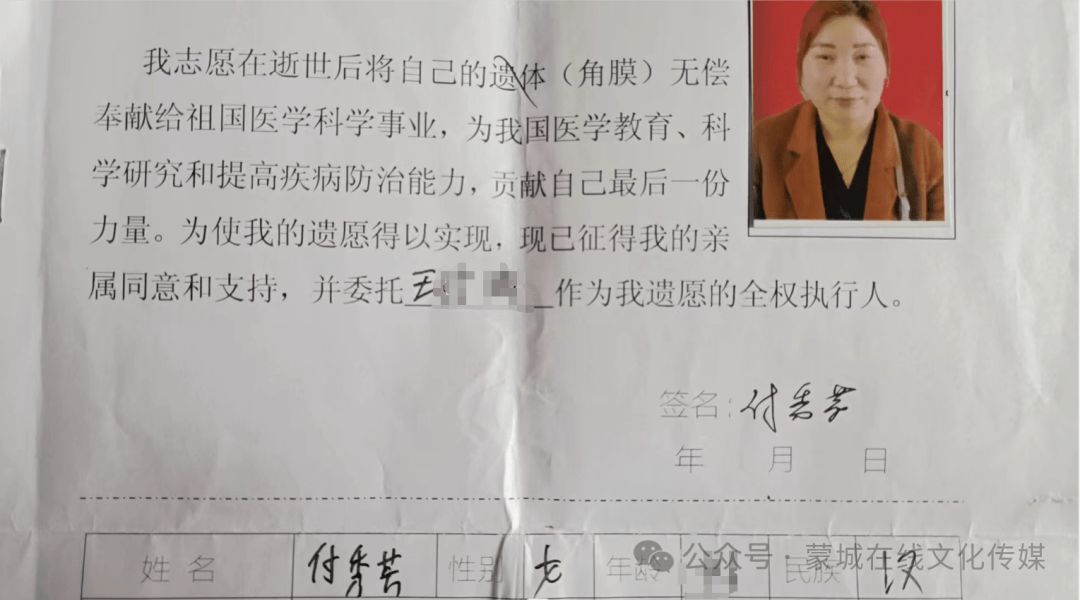 我志愿在逝世后将自己的遗体（角膜）无偿
奉献给祖国医学科学事业，为我国医学教育、科
学研究和提高疾病防治能力，贡献自己最后一份
力量。为使我的遗愿得以实现，现已征得我的亲
属同意和支持，并委托王 作为我遗愿的全权执行人。
签名：付秀芳
年 月 日
姓名 付秀芳 性别 女 年龄 民族 汉
公众号·蒙城在线文化传媒